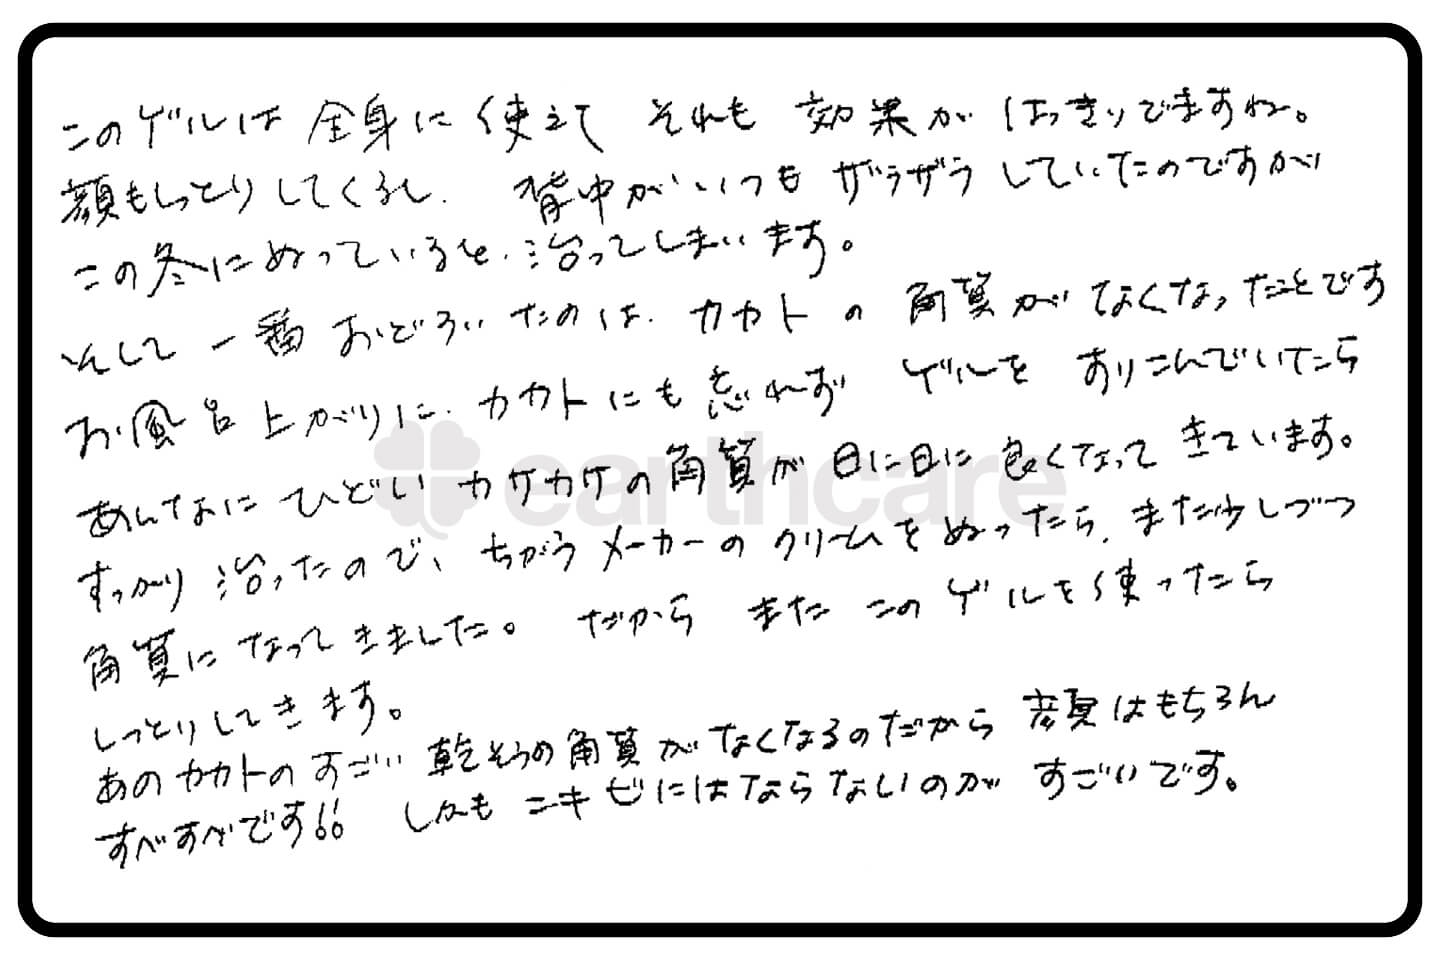 このゲルは全身に使えて それも 効果が はっきりでますね。
顔もしっとりしてくるし、背中がいつもザラザラしていたのですが
この冬にぬっていると、治ってしまいます。
そして一番おどろいたのは、カカトの角質がなくなったことです
お風呂上がりに、カカトにも忘れず ゲルを すりこんでいたら
あんなに ひどい カサカサの角質が 日に日に 良くなって きています。
すっかり治ったので、ちがうメーカーのクリームをぬったら、また少しづつ
角質になってきました。だから また このゲルを使ったら
しっとりしてきます。
あのカカトのすごい乾そうの角質がなくなるのだから 顔はもちろん
すべすべです!! しかも ニキビにはならないのが すごいです。
earthcare